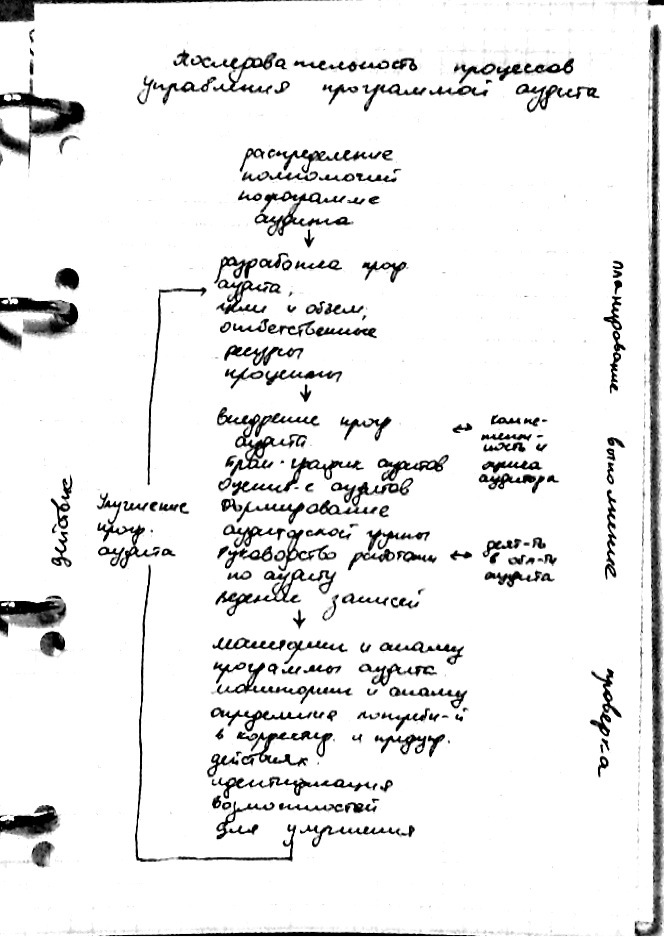 Последовательность процессов
управления программой аудита
распределение
полномочий
по программе
аудита
разработка прог.
аудита,
цели и объем,
ответственные
ресурсы
процессы
внедрение прог.
аудита
план-график аудитов
оценив-е аудитов
Формирование
аудиторской группы
Руководство работами
по аудиту
ведение записей
компе-
тент-
ность и
оценка
аудитора
деят-ть
в обл-ти
аудита
мониторинг и анализ
программы аудита
мониторинг и анализ
определения потребн-й
в корректир. и предупр.
действиях.
идентификация
возможностей
для улучшения
Улучшение
прог.
аудита
действие
планирование
выполнение
проверка